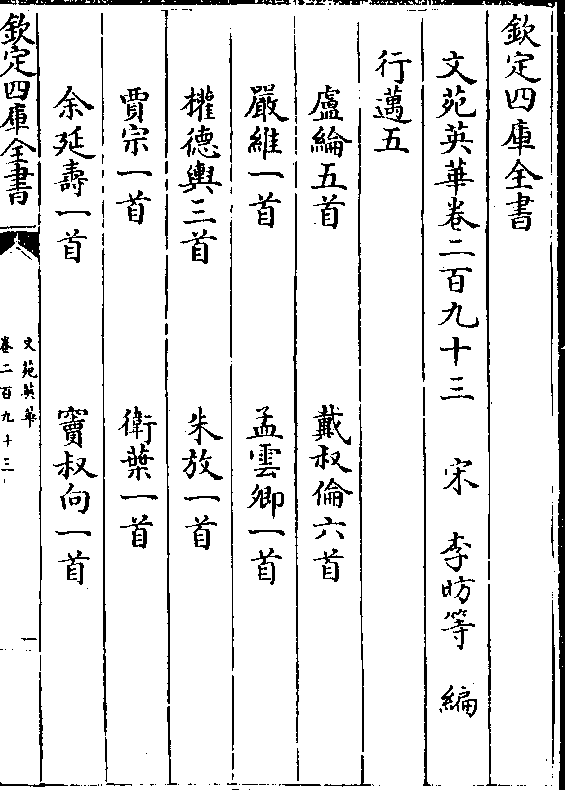 欽定四庫全書
文苑英華卷二百九十三　宋　李昉等　編
行邁五
盧綸五首　戴叔倫六首
嚴維一首　孟雲卿一首
權德輿三首　朱放一首
賈宗一首　衛葉一首
余延壽一首　竇叔向一首
欽定四庫全書
文苑英華
卷二百九十三
一